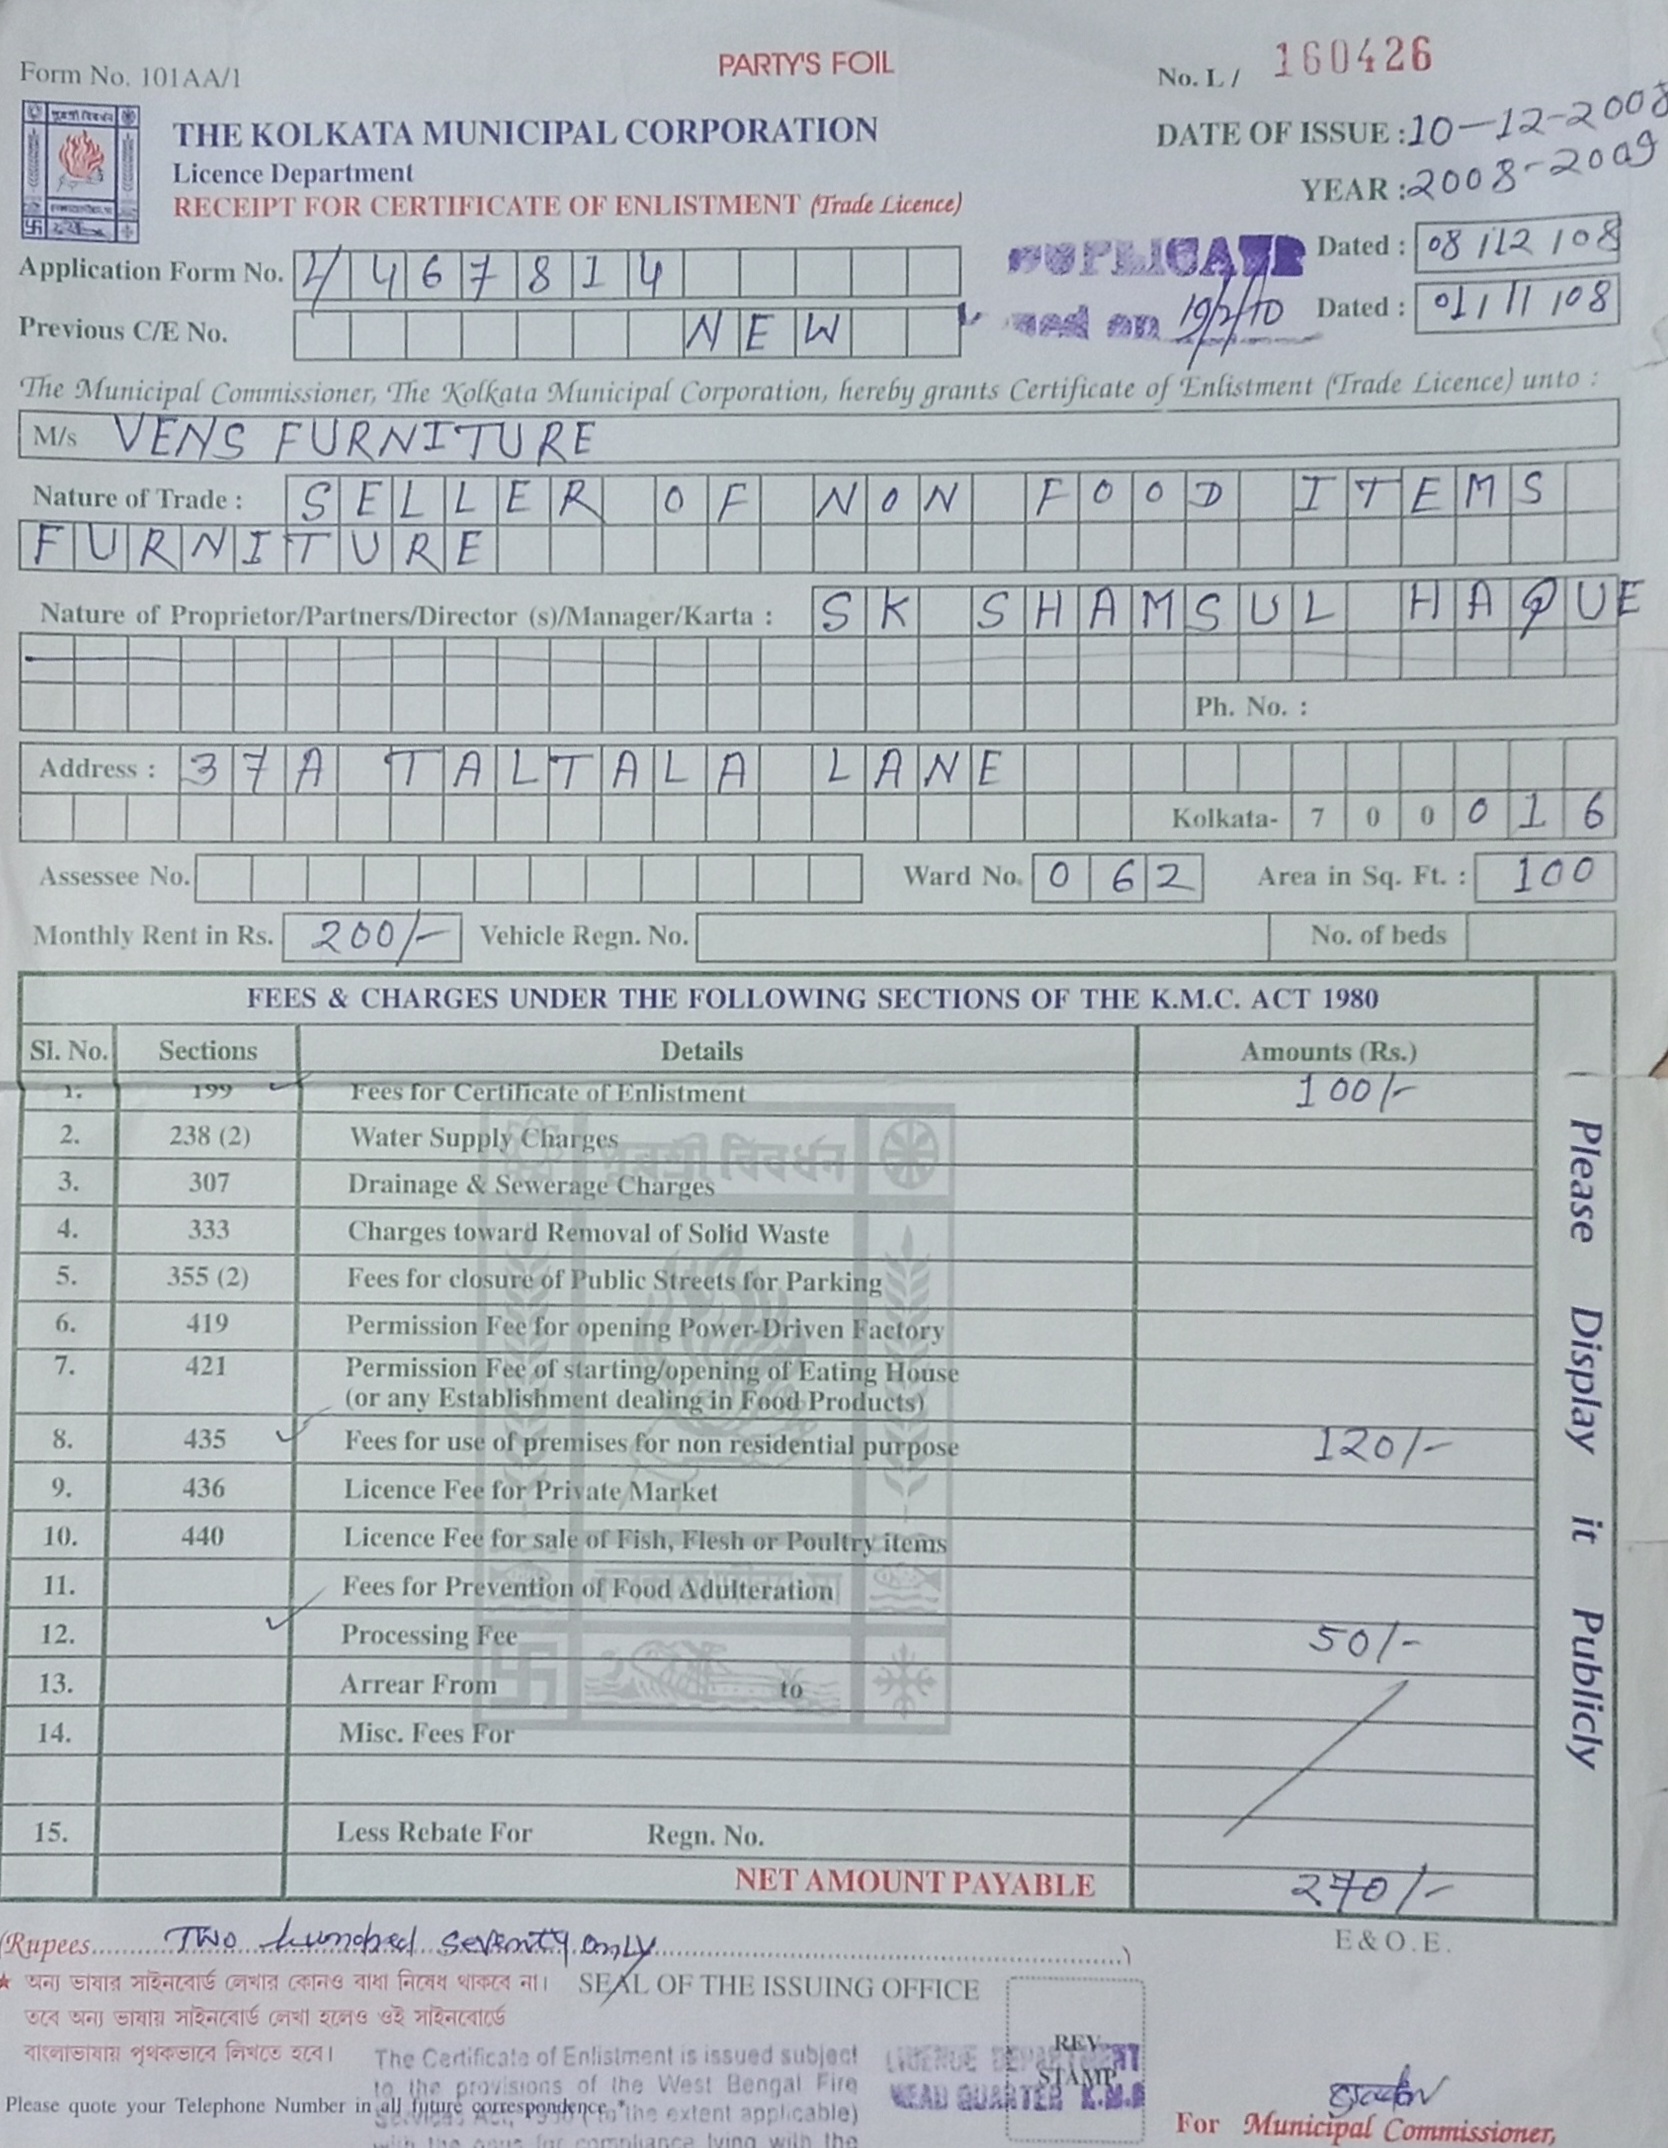 PARTY'S FOIL
Form No. 101AA/1
No. L / 160426
THE KOLKATA MUNICIPAL CORPORATION
DATE OF ISSUE : 10-12-2008
Licence Department
YEAR : 2008-2009
RECEIPT FOR CERTIFICATE OF ENLISTMENT (Trade Licence)
DUPLICATE
Dated : 08/12/08
Application Form No. 4467814
on 19/2/10
Dated : 01/11/08
Previous C/E No. NEW
The Municipal Commissioner, The Kolkata Municipal Corporation, hereby grants Certificate of Enlistment (Trade Licence) unto :
M/s VENS FURNITURE
Nature of Trade : SELLER OF NON FOOD ITEMS
FURNITURE
Nature of Proprietor/Partners/Director (s)/Manager/Karta : SK SHAMSUL HAQUE
Ph. No. :
Address : 37A TALTALA LANE
Kolkata- 700016
Assessee No. Ward No. 062 Area in Sq. Ft. : 100
Monthly Rent in Rs. 200/- Vehicle Regn. No. No. of beds
FEES & CHARGES UNDER THE FOLLOWING SECTIONS OF THE K.M.C. ACT 1980
Sl. No. Sections Details Amounts (Rs.)
1. 199 Fees for Certificate of Enlistment 100/-
2. 238 (2) Water Supply Charges
3. 307 Drainage & Sewerage Charges
4. 333 Charges toward Removal of Solid Waste
5. 355 (2) Fees for closure of Public Streets for Parking
6. 419 Permission Fee for opening Power-Driven Factory
7. 421 Permission Fee of starting/opening of Eating House
(or any Establishment dealing in Food Products)
8. 435 Fees for use of premises for non residential purpose 120/-
9. 436 Licence Fee for Private Market
10. 440 Licence Fee for sale of Fish, Flesh or Poultry items
11. Fees for Prevention of Food Adulteration
12. Processing Fee 50/-
13. Arrear From to
14. Misc. Fees For
15. Less Rebate For Regn. No.
NET AMOUNT PAYABLE 270/-
Please Display it Publicly
(Rupees Two hundred seventy only)
E & O. E.
★ অন্য ভাষার সাইনবোর্ড লেখার কোনও বাধা নিষেধ থাকবে না। SEAL OF THE ISSUING OFFICE
তবে অন্য ভাষায় সাইনবোর্ড লেখা হলেও ওই সাইনবোর্ডে
বাংলাভাষায় পৃথকভাবে লিখতে হবে।
REV.
STAMP
The Certificate of Enlistment is issued subject
to the provisions of the West Bengal Fire
(to the extent applicable)
LICENCE DEPARTMENT
HEAD QUARTER K.M.C
Please quote your Telephone Number in all future correspondence
For Municipal Commissioner,